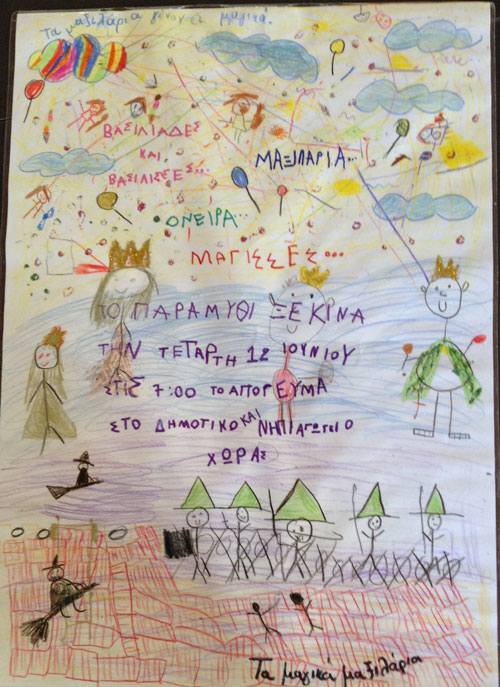 Τα μαξιλάρια γίνονται μαγικά.
ΒΑΣΙΛΙΑΔΕΣ
ΚΑΙ
ΒΑΣΙΛΙΣΣΕΣ...
ΜΑΞΙΛΑΡΙΑ...
ΟΝΕΙΡΑ...
ΜΑΓΙΣΣΕΣ...
ΤΟ ΠΑΡΑΜΥΘΙ ΞΕΚΙΝΑ
ΤΗΝ ΤΕΤΑΡΤΗ 12 ΙΟΥΝΙΟΥ
ΣΤΙΣ 7:00 ΤΟ ΑΠΟΓΕΥΜΑ
ΣΤΟ ΔΗΜΟΤΙΚΟ ΚΑΙ ΝΗΠΙΑΓΩΓΕΙΟ
ΧΩΡΑΣ
Τα μαγικά μαξιλάρια